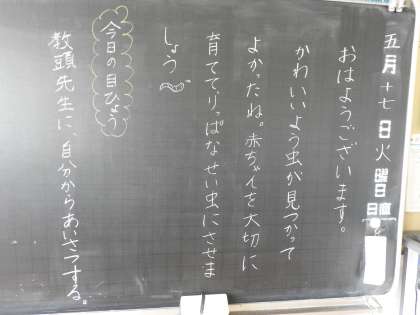 五月十七日火曜日
日直
おはようございます。
かわいいよう虫が見つかって
よかったね。赤ちゃんを大切に
育てて、りっぱなせい虫にさせま
しょう
今日の目ひょう
教頭先生に、自分からあいさつする。